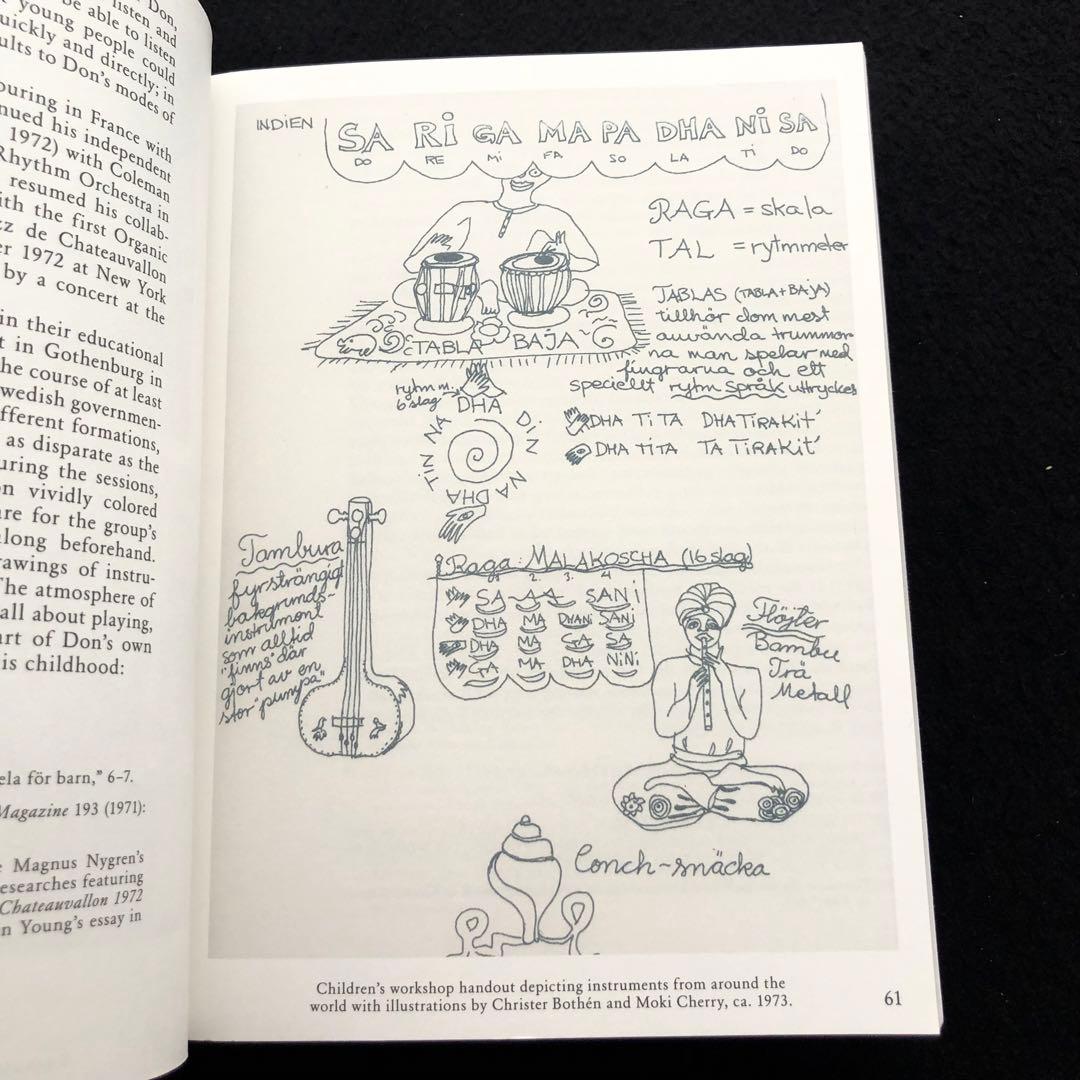 Don,
listen and
be able to listen
young people could
quickly and directly; in
ults to Don's modes of
ouring in France with
nued his independent
1972) with Coleman
Rhythm Orchestra in
resumed his collab-
ith the first Organic
zz de Chateauvallon
er 1972 at New York
by a concert at the
in their educational
t in Gothenburg in
he course of at least
wedish governmen-
fferent formations,
as disparate as the
uring the sessions,
n vividly colored
are for the group's
long beforehand.
rawings of instru-
The atmosphere of
all about playing,
art of Don's own
is childhood:
ela för barn," 6–7.
Magazine 193 (1971):
Magnus Nygren's
esearches featuring
Chateauvallon 1972
n Young's essay in
INDIEN
SA RI GA MA PA DHA NI SA
DO RE MI FA SO LA TI DO
RAGA = skala
TAL = rytmmeter
TABLAS (TABLA + BAJA)
tillhör dom mest
använda trummor
na man spelar med
fingrarna och ett
speciellt rytm språk uttryckes
TABLA BAJA
rytm m.
6 slag
DHA DIN NA DHA TIN NA
DHA TI TA DHA TIRAKIT'
DHA TITA TA TIRAKIT'
Tambura
fyrsträngigt
bakgrunds-
instrument
som alltid
"finns" där
gjort av en
stor "pumpa"
Raga: MALAKOSCHA (16 slag)
1. 2. 3. 4
SA-A A SANI
DHA MA DHANI SANI
DHA MA GA SA
GA MA DHA NINI
Flöjter
Bambu
Trä
Metall
Conch-snäcka
Children's workshop handout depicting instruments from around the
world with illustrations by Christer Bothén and Moki Cherry, ca. 1973.
61